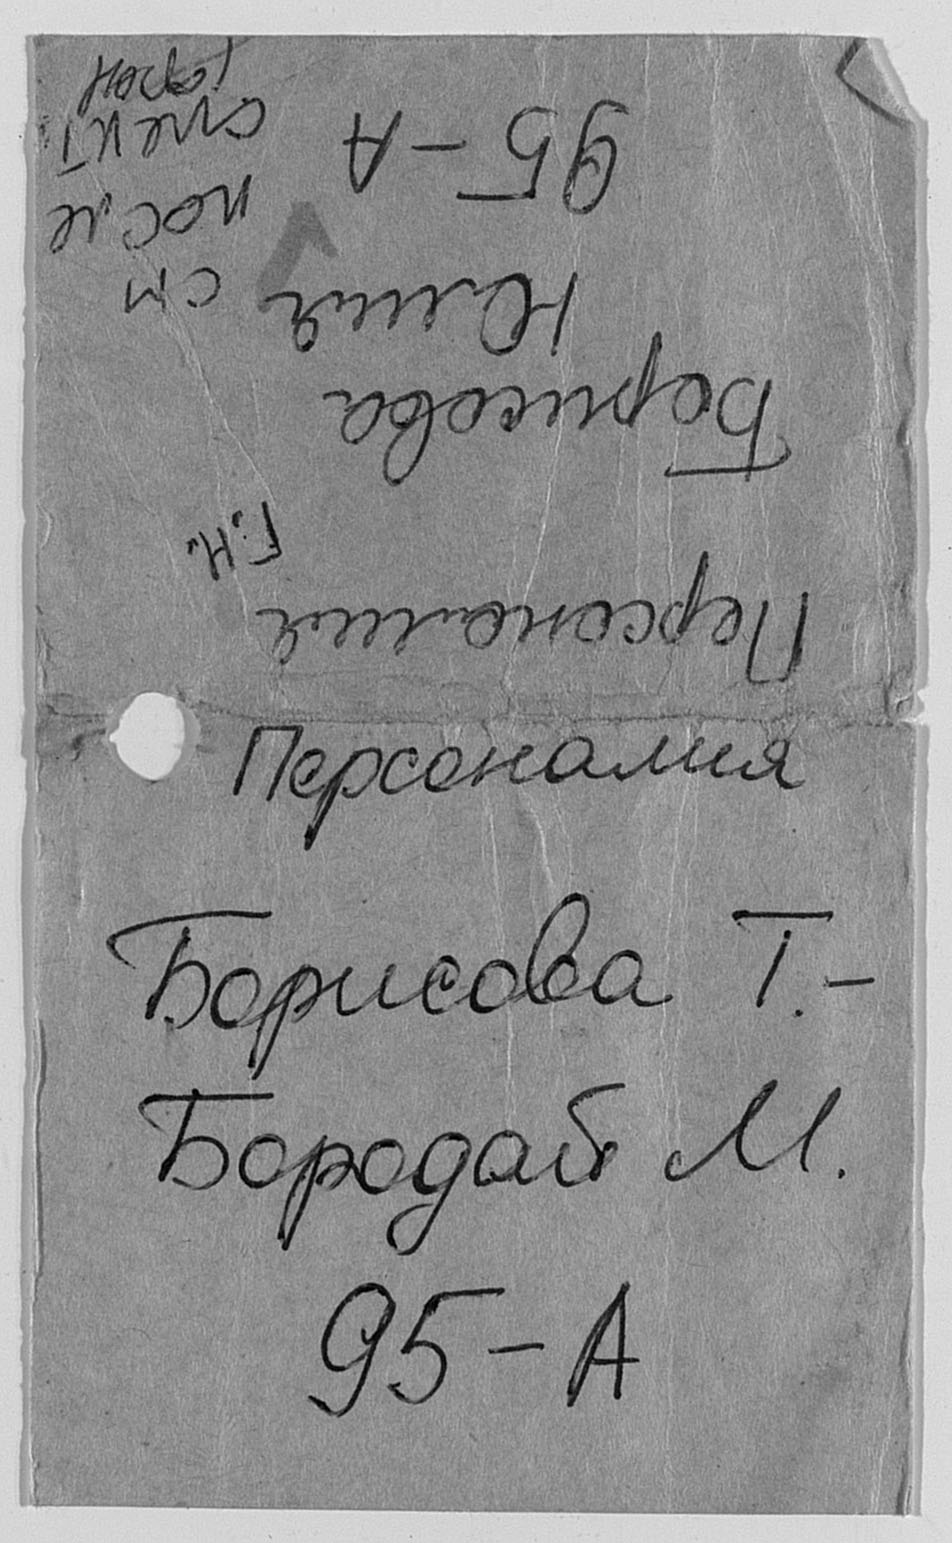 Персоналия
Борисова Т.-
Бородай М.
95-А
Персоналия
Г.Н.
Борисова
Юлия
95-А
см
после
спект